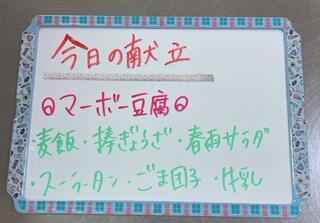 今日の献立
◎マーボー豆腐◎
・麦飯・棒ぎょうざ・春雨サラダ
・スーラータン・ごま団子・牛乳